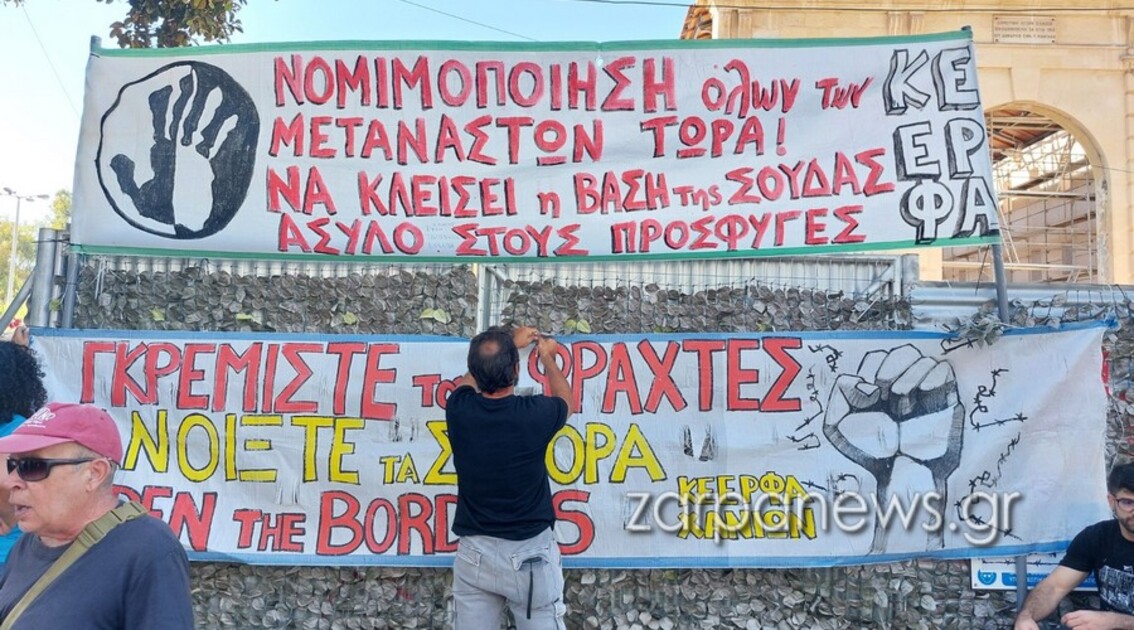 ΝΟΜΙΜΟΠΟΙΗΣΗ όλων των
ΜΕΤΑΝΑΣΤΩΝ ΤΩΡΑ!
ΝΑ ΚΛΕΙΣΕΙ η ΒΑΣΗ της ΣΟΥΔΑΣ
ΑΣΥΛΟ ΣΤΟΥΣ ΠΡΟΣΦΥΓΕΣ
ΚΕ
ΕΡ
ΦΑ
ΓΚΡΕΜΙΣΤΕ ΦΡΑΧΤΕΣ
ΝΟΙΞΤΕ ΤΑ
THE
ΚΕΕΡΦΑ
ΧΑΝΙΩΝ
zarpanews.gr